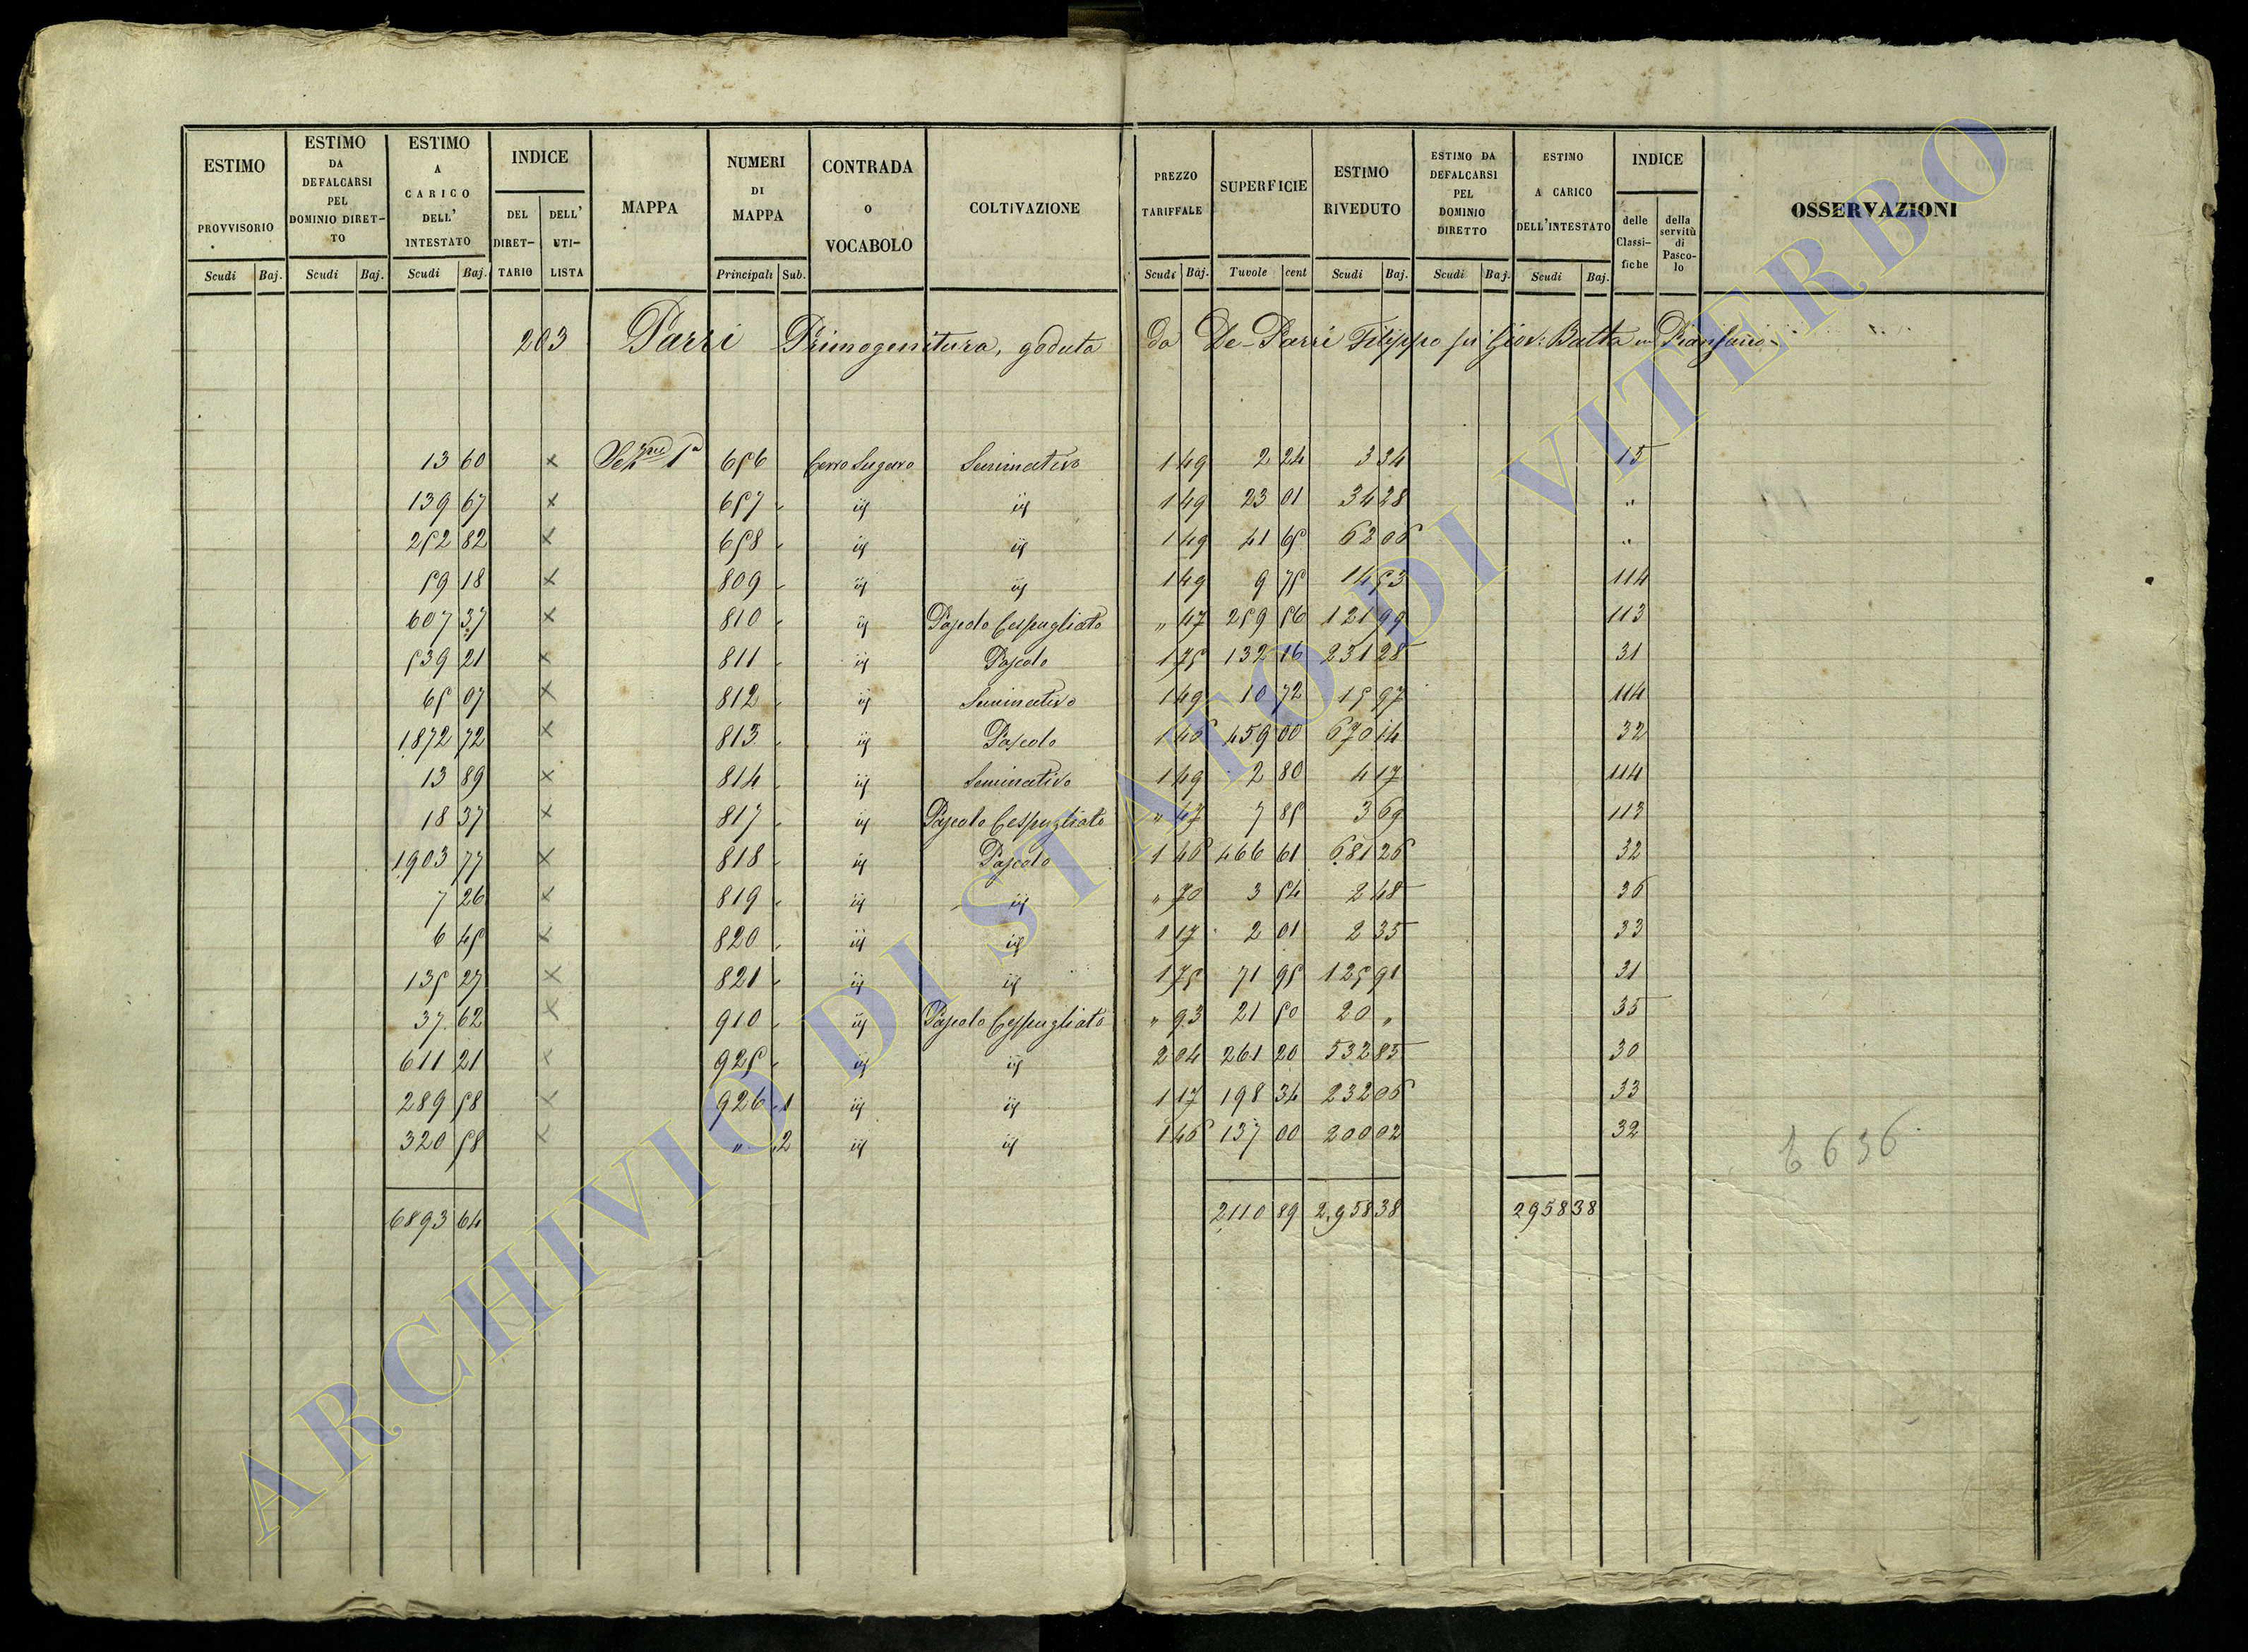 ESTIMO PROVVISORIO Scudi Baj.
ESTIMO DA DEFALCARSI PEL DOMINIO DIRET-TO Scudi Baj.
ESTIMO A CARICO DELL' INTESTATO Scudi Baj.
INDICE DEL DIRET-TARIO DELL' UTI-LISTA
MAPPA
NUMERI DI MAPPA Principali Sub.
CONTRADA O VOCABOLO
COLTIVAZIONE
PREZZO TARIFFALE Scudi Baj.
SUPERFICIE Tavole cent
ESTIMO RIVEDUTO Scudi Baj.
ESTIMO DA DEFALCARSI PEL DOMINIO DIRETTO Scudi Baj.
ESTIMO A CARICO DELL'INTESTATO Scudi Baj.
INDICE delle Classi-fiche della servitù di Pasco-lo
OSSERVAZIONI
203 Parri Primogenitura, goduta da De-Parri Filippo fu Giov: Batta in Pianfano
13 60 x Sez.ne 1a 656 Cerro Sugaro Seminativo 1 49 2 24 3 34 15
139 67 x 657 id id 1 49 23 01 34 28 "
252 82 x 658 id id 1 49 41 65 62 06 "
59 18 x 809 id id 1 49 9 75 14 53 114
607 37 x 810 id Pascolo Cespugliato " 47 259 56 121 99 113
539 21 x 811 id Pascolo 1 75 132 16 231 28 31
65 07 x 812 id Seminativo 1 49 10 72 15 97 114
1872 72 x 813 id Pascolo 1 46 459 00 670 14 32
13 89 x 814 id Seminativo 1 49 2 80 4 17 114
18 37 x 817 id Pascolo Cespugliato " 47 7 85 3 69 113
1903 77 x 818 id Pascolo 1 46 466 61 681 26 32
7 26 x 819 id id " 70 3 54 2 48 36
6 45 x 820 id id 1 17 2 01 2 35 33
135 27 x 821 id id 1 75 71 95 125 91 31
37 62 x 910 id Pascolo Cespugliato " 93 21 50 20 " 35
611 21 x 925 id id 2 04 261 20 532 85 30
289 58 x 926 1 id id 1 17 198 34 232 06 33
320 58 x " 2 id id 1 46 137 00 200 02 32
6636
6893 64 2110 89 2958 38 2958 38
ARCHIVIO DI STATO DI VITERBO